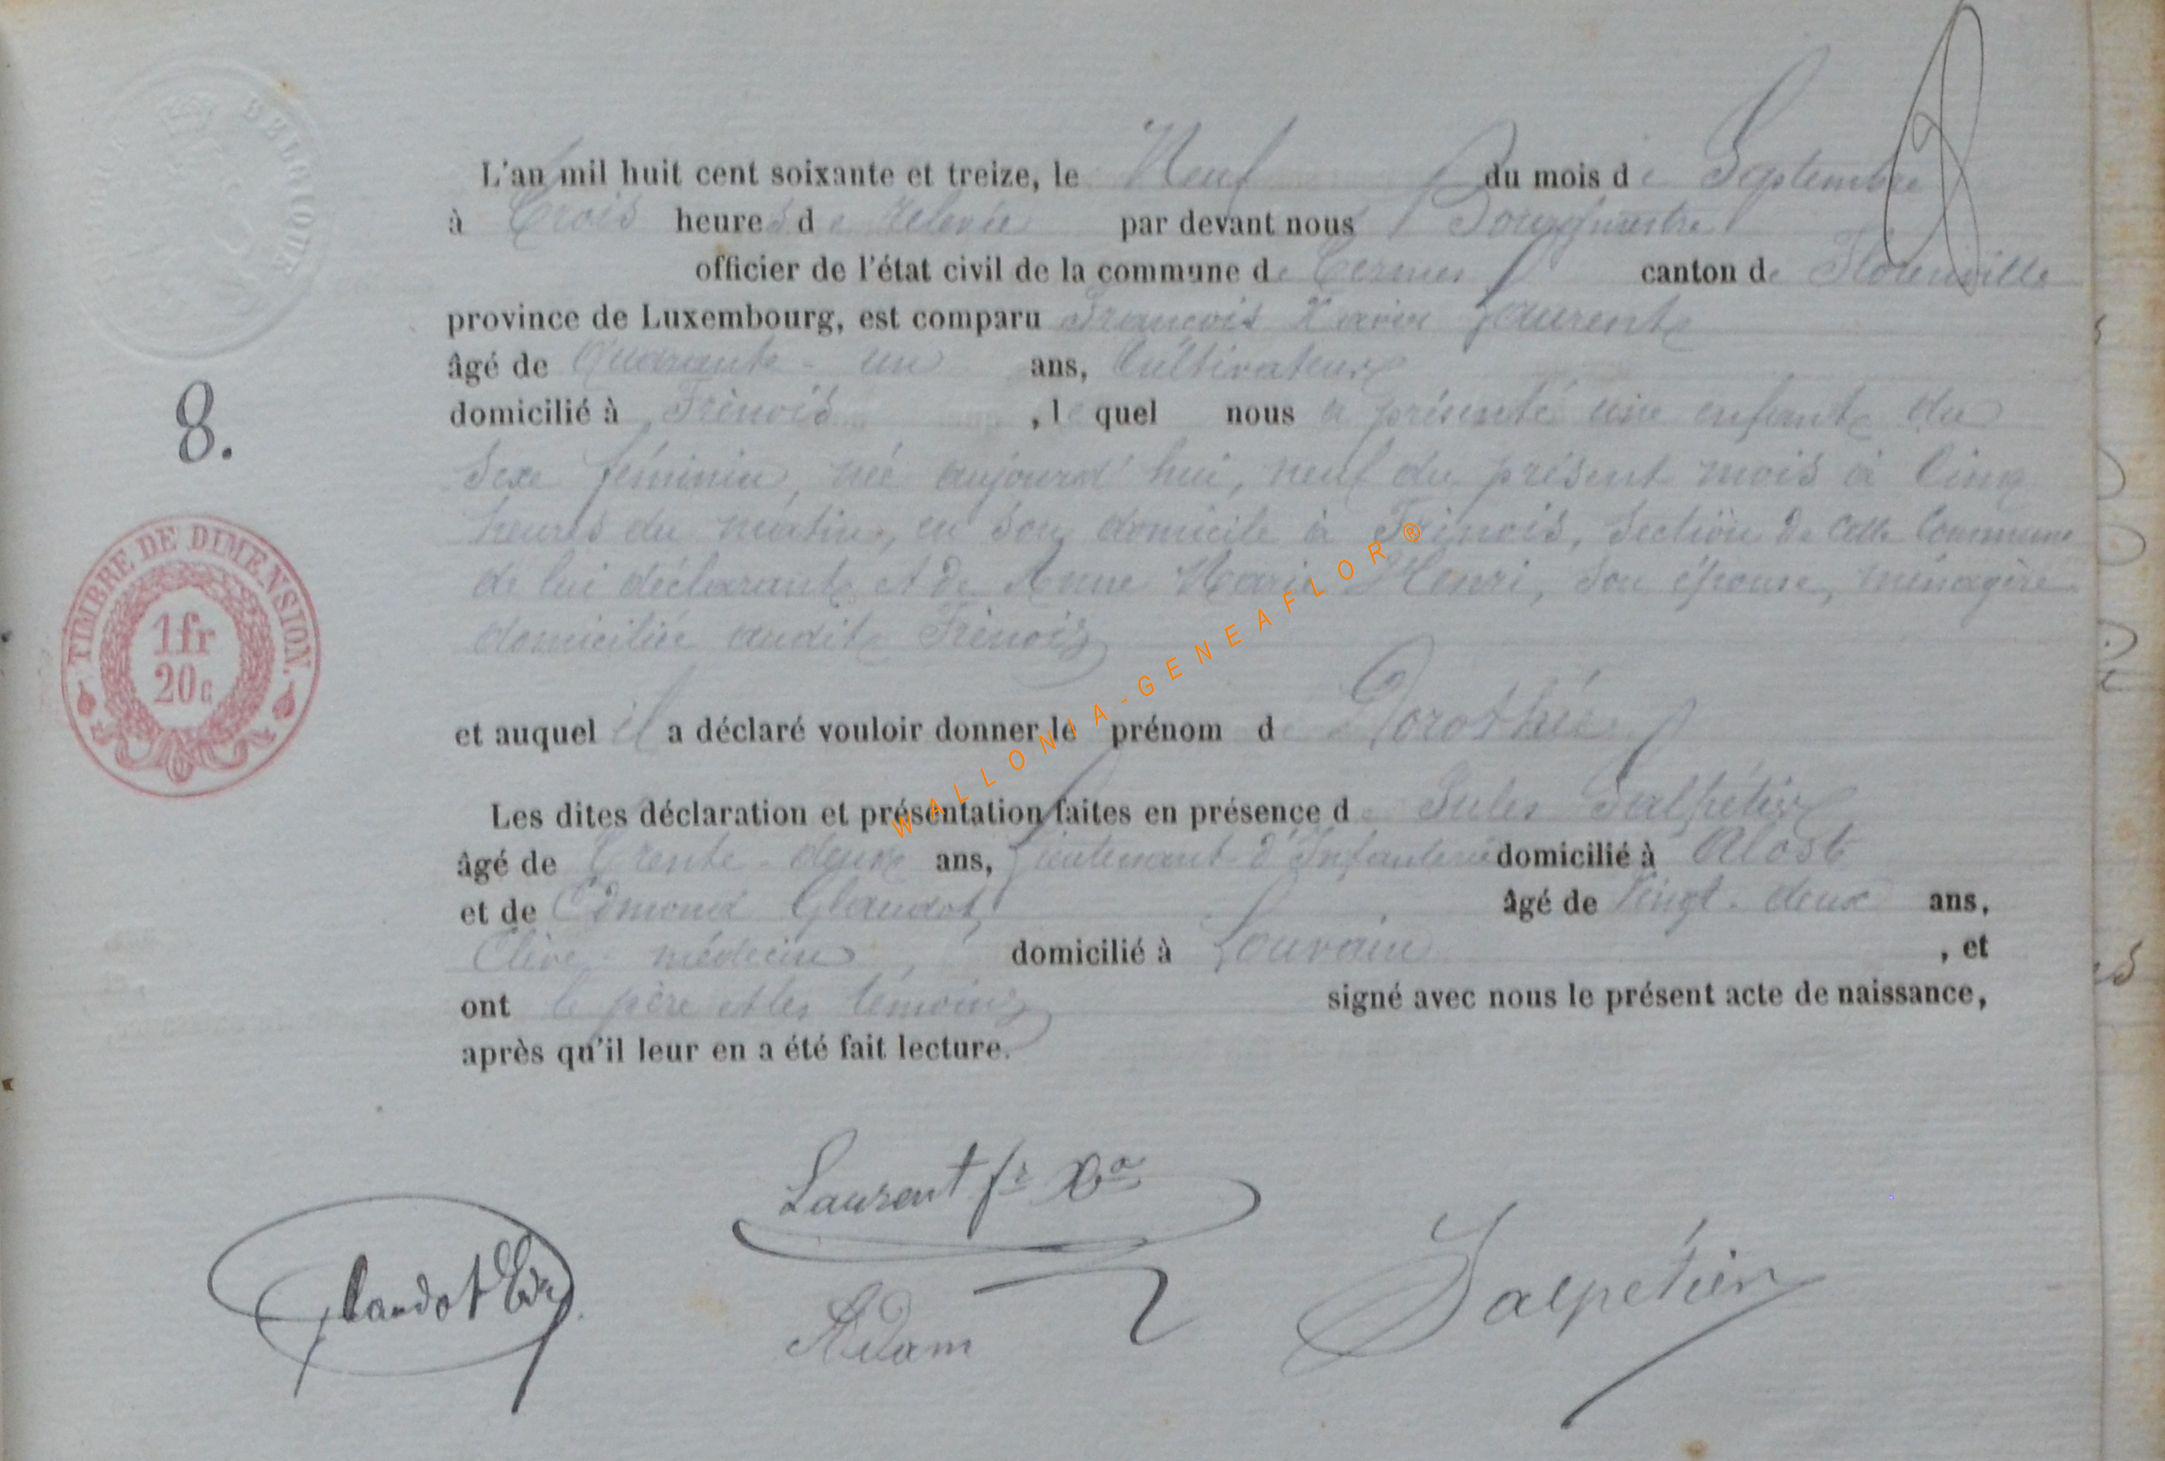 BELGIQUE
L'an mil huit cent soixante et treize, le Neuf du mois de Septembre
à Trois heures de relevée par devant nous Bourgmestre
officier de l'état civil de la commune de Termes canton de Florenville
province de Luxembourg, est comparu François Xavier Laurent
âgé de Quarante-un ans, Cultivateur
domicilié à Frenois, lequel nous a présenté une enfant du
8.
sexe féminin, née aujourd'hui, neuf du présent mois à Cinq
heures du matin, en son domicile à Frenois, section de cette Commune
de lui déclarant et de Anne Marie Henri, son épouse, ménagère
domiciliée audit Frenois
TIMBRE DE DIMENSION.
1fr
20c
et auquel il a déclaré vouloir donner le prénom de Dorothée
Les dites déclaration et présentation faites en présence de Jules Salpétier
âgé de Trente-deux ans, Lieutenant d'Infanterie domicilié à Alost
et de Edmond Glaudot, âgé de Vingt-deux ans,
Elève-médecin, domicilié à Louvain, et
ont le père et les témoins signé avec nous le présent acte de naissance,
après qu'il leur en a été fait lecture.
WALLONIA-GENEAFLOR®
Laurent fr Xer
Glaudot Ed
Adam
Salpétier